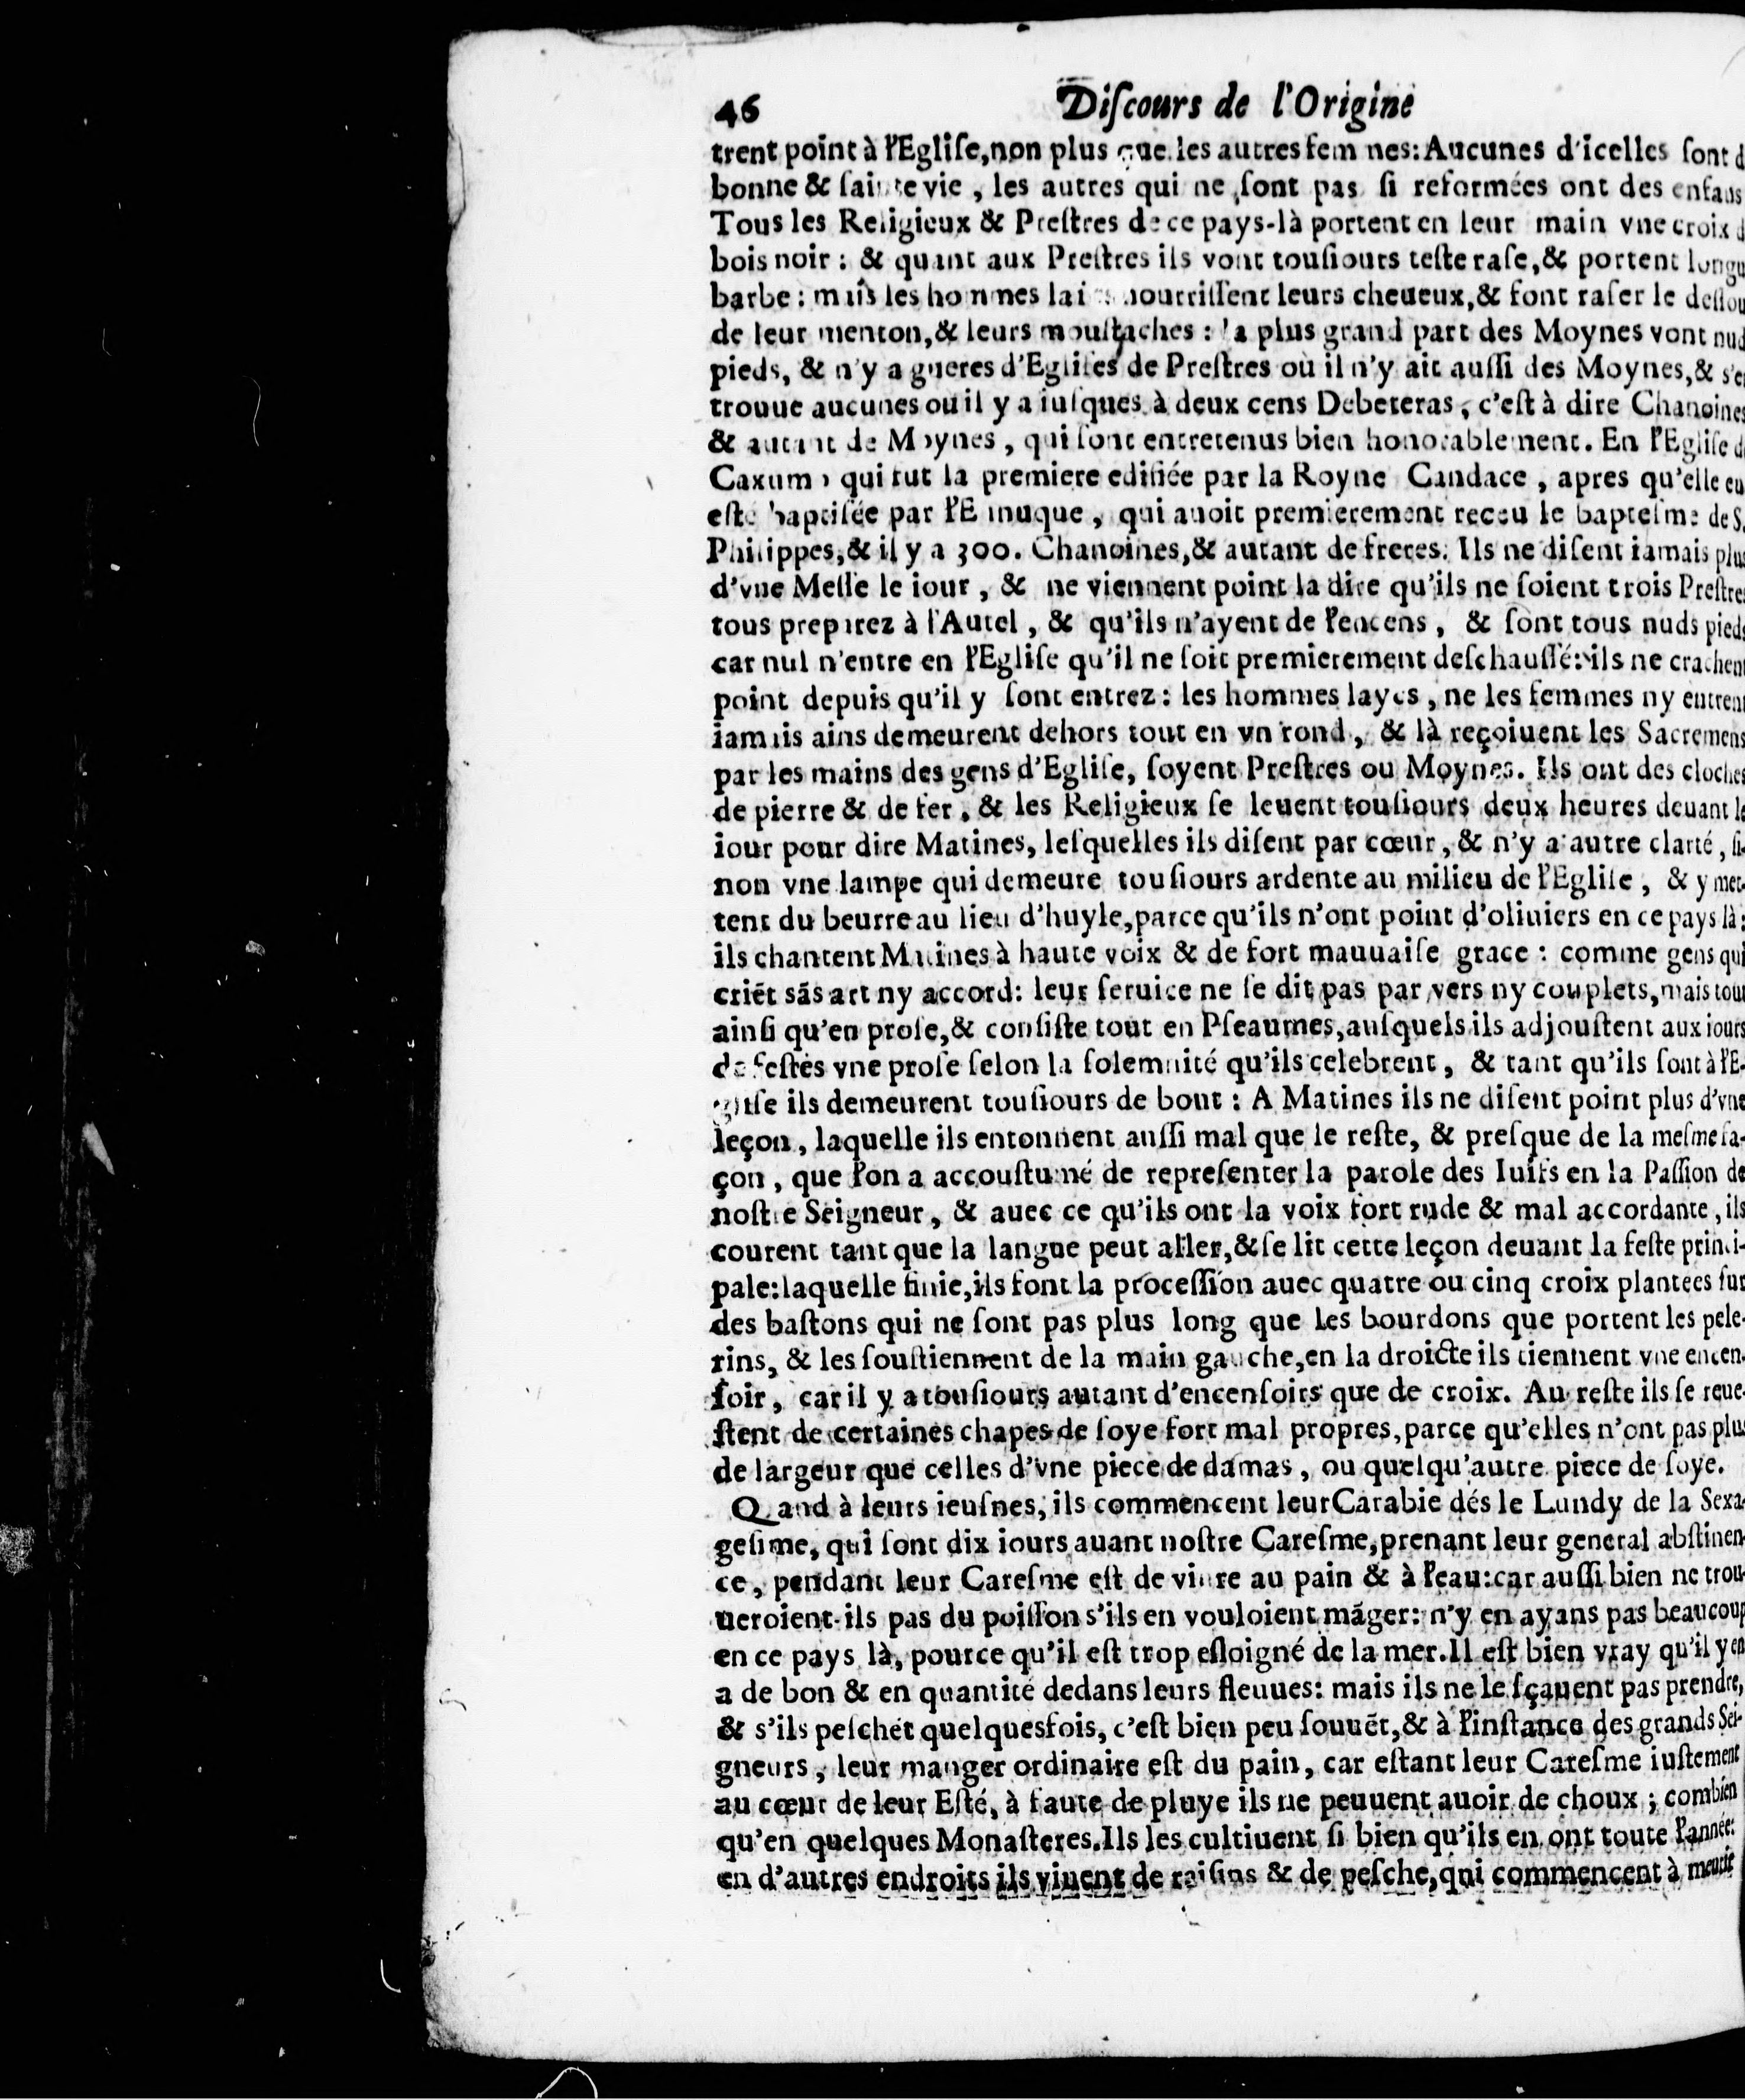 46 Diſcours de l'Origine
trent point à l'Egliſe, non plus que les autres femmes: Aucunes d'icelles ſont d
bonne & ſainte vie, les autres qui ne ſont pas ſi reformées ont des enfans
Tous les Religieux & Preſtres de ce pays-là portent en leur main vne croix d
bois noir: & quant aux Preſtres ils vont touſiours teſte raſe, & portent longu
barbe: mais les hommes lais nourriſſent leurs cheueux, & font raſer le deſſou
de leur menton, & leurs mouſtaches: la plus grand part des Moynes vont nud
pieds, & n'y a gueres d'Egliſes de Preſtres où il n'y ait auſſi des Moynes, & s'e
trouue aucunes ou il y a iuſques à deux cens Debeteras, c'eſt à dire Chanoines
& autant de Moynes, qui ſont entretenus bien honorablement. En l'Egliſe d
Caxum, qui fut la premiere edifiée par la Royne Candace, apres qu'elle eu
eſté baptiſée par l'Eunuque, qui auoit premierement receu le bapteſme de S.
Philippes, & il y a 300. Chanoines, & autant de freres. Ils ne diſent iamais plus
d'vne Meſſe le iour, & ne viennent point la dire qu'ils ne ſoient trois Preſtres
tous preparez à l'Autel, & qu'ils n'ayent de l'encens, & ſont tous nuds pieds
car nul n'entre en l'Egliſe qu'il ne ſoit premierement deſchauſſé: ils ne crachent
point depuis qu'il y ſont entrez: les hommes layes, ne les femmes ny entrent
iamais ains demeurent dehors tout en vn rond, & là reçoiuent les Sacremens
par les mains des gens d'Egliſe, ſoyent Preſtres ou Moynes. Ils ont des cloches
de pierre & de fer, & les Religieux ſe leuent touſiours deux heures deuant le
iour pour dire Matines, leſquelles ils diſent par cœur, & n'y a autre clarté, ſi-
non vne lampe qui demeure touſiours ardente au milieu de l'Egliſe, & y met-
tent du beurre au lieu d'huyle, parce qu'ils n'ont point d'oliuiers en ce pays là:
ils chantent Matines à haute voix & de fort mauuaiſe grace: comme gens qui
criẽt sãs art ny accord: leur ſeruice ne ſe dit pas par vers ny couplets, mais tout
ainſi qu'en proſe, & conſiſte tout en Pſeaumes, auſquels ils adjouſtent aux iours
de feſtes vne proſe ſelon la ſolemnité qu'ils celebrent, & tant qu'ils ſont à l'E-
gliſe ils demeurent touſiours de bout: A Matines ils ne diſent point plus d'vne
leçon, laquelle ils entonnent auſſi mal que le reſte, & preſque de la meſme fa-
çon, que l'on a accouſtumé de repreſenter la parole des Iuifs en la Paſſion de
noſtre Seigneur, & auec ce qu'ils ont la voix fort rude & mal accordante, ils
courent tant que la langue peut aller, & ſe lit cette leçon deuant la feſte princi-
pale: laquelle finie, ils font la proceſſion auec quatre ou cinq croix plantees ſur
des baſtons qui ne ſont pas plus long que les bourdons que portent les pele-
rins, & les ſouſtiennent de la main gauche, en la droicte ils tiennent vne encen-
ſoir, car il y a touſiours autant d'encenſoirs que de croix. Au reſte ils ſe reue-
ſtent de certaines chapes de ſoye fort mal propres, parce qu'elles n'ont pas plus
de largeur que celles d'vne piece de damas, ou quelqu'autre piece de ſoye.
Quand à leurs ieuſnes, ils commencent leur Carabie dés le Lundy de la Sexa-
geſime, qui ſont dix iours auant noſtre Careſme, prenant leur general abſtinen-
ce, pendant leur Careſme eſt de viure au pain & à l'eau: car auſſi bien ne trou-
ueroient-ils pas du poiſſon s'ils en vouloient mãger: n'y en ayans pas beaucoup
en ce pays là, pource qu'il eſt trop eſloigné de la mer. Il eſt bien vray qu'il y en
a de bon & en quantité dedans leurs fleuues: mais ils ne le ſçauent pas prendre,
& s'ils peſchẽt quelquesfois, c'eſt bien peu ſouuẽt, & à l'inſtance des grands Sei-
gneurs, leur manger ordinaire eſt du pain, car eſtant leur Careſme iuſtement
au cœur de leur Eſté, à faute de pluye ils ne peuuent auoir de choux; combien
qu'en quelques Monaſteres. Ils les cultiuent ſi bien qu'ils en ont toute l'année:
en d'autres endroits ils viuent de raiſins & de peſche, qui commencent à meurir